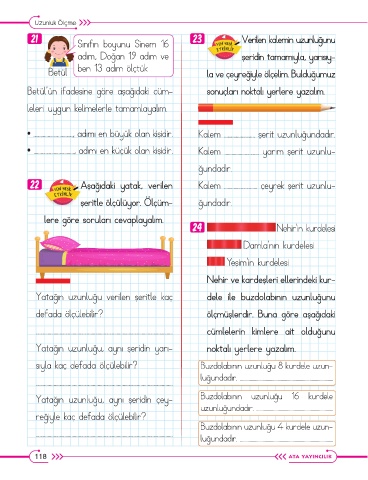 Uzunluk Ölçme
21
Sınıfın boyunu Sinem 16
adım, Doğan 19 adım ve
ben 13 adım ölçtük.
Betül
Betül'ün ifadesine göre aşağıdaki cüm-
leleri uygun kelimelerle tamamlayalım.
• ................ adımı en büyük olan kişidir.
• ................ adımı en küçük olan kişidir.
22
Aşağıdaki yatak, verilen
şeritle ölçülüyor. Ölçüm-
lere göre soruları cevaplayalım.
Yatağın uzunluğu verilen şeritle kaç
defada ölçülebilir?
Yatağın uzunluğu, aynı şeridin yarı-
sıyla kaç defada ölçülebilir?
Yatağın uzunluğu, aynı şeridin çey-
reğiyle kaç defada ölçülebilir?
118
23
Verilen kalemin uzunluğunu
şeridin tamamıyla, yarısıy-
la ve çeyreğiyle ölçelim. Bulduğumuz
sonuçları noktalı yerlere yazalım.
Kalem ................ şerit uzunluğundadır.
Kalem ................ yarım şerit uzunlu-
ğundadır.
Kalem ................ çeyrek şerit uzunlu-
ğundadır.
24
Nehir'in kurdelesi
Damla'nın kurdelesi
Yeşim'in kurdelesi
Nehir ve kardeşleri ellerindeki kur-
dele ile buzdolabının uzunluğunu
ölçmüşlerdir. Buna göre aşağıdaki
cümlelerin kimlere ait olduğunu
noktalı yerlere yazalım.
Buzdolabının uzunluğu 8 kurdele uzun-
luğundadır. ................
Buzdolabının uzunluğu 16 kurdele
uzunluğundadır. ................
Buzdolabının uzunluğu 4 kurdele uzun-
luğundadır. ................
ATA YAYINCILIK